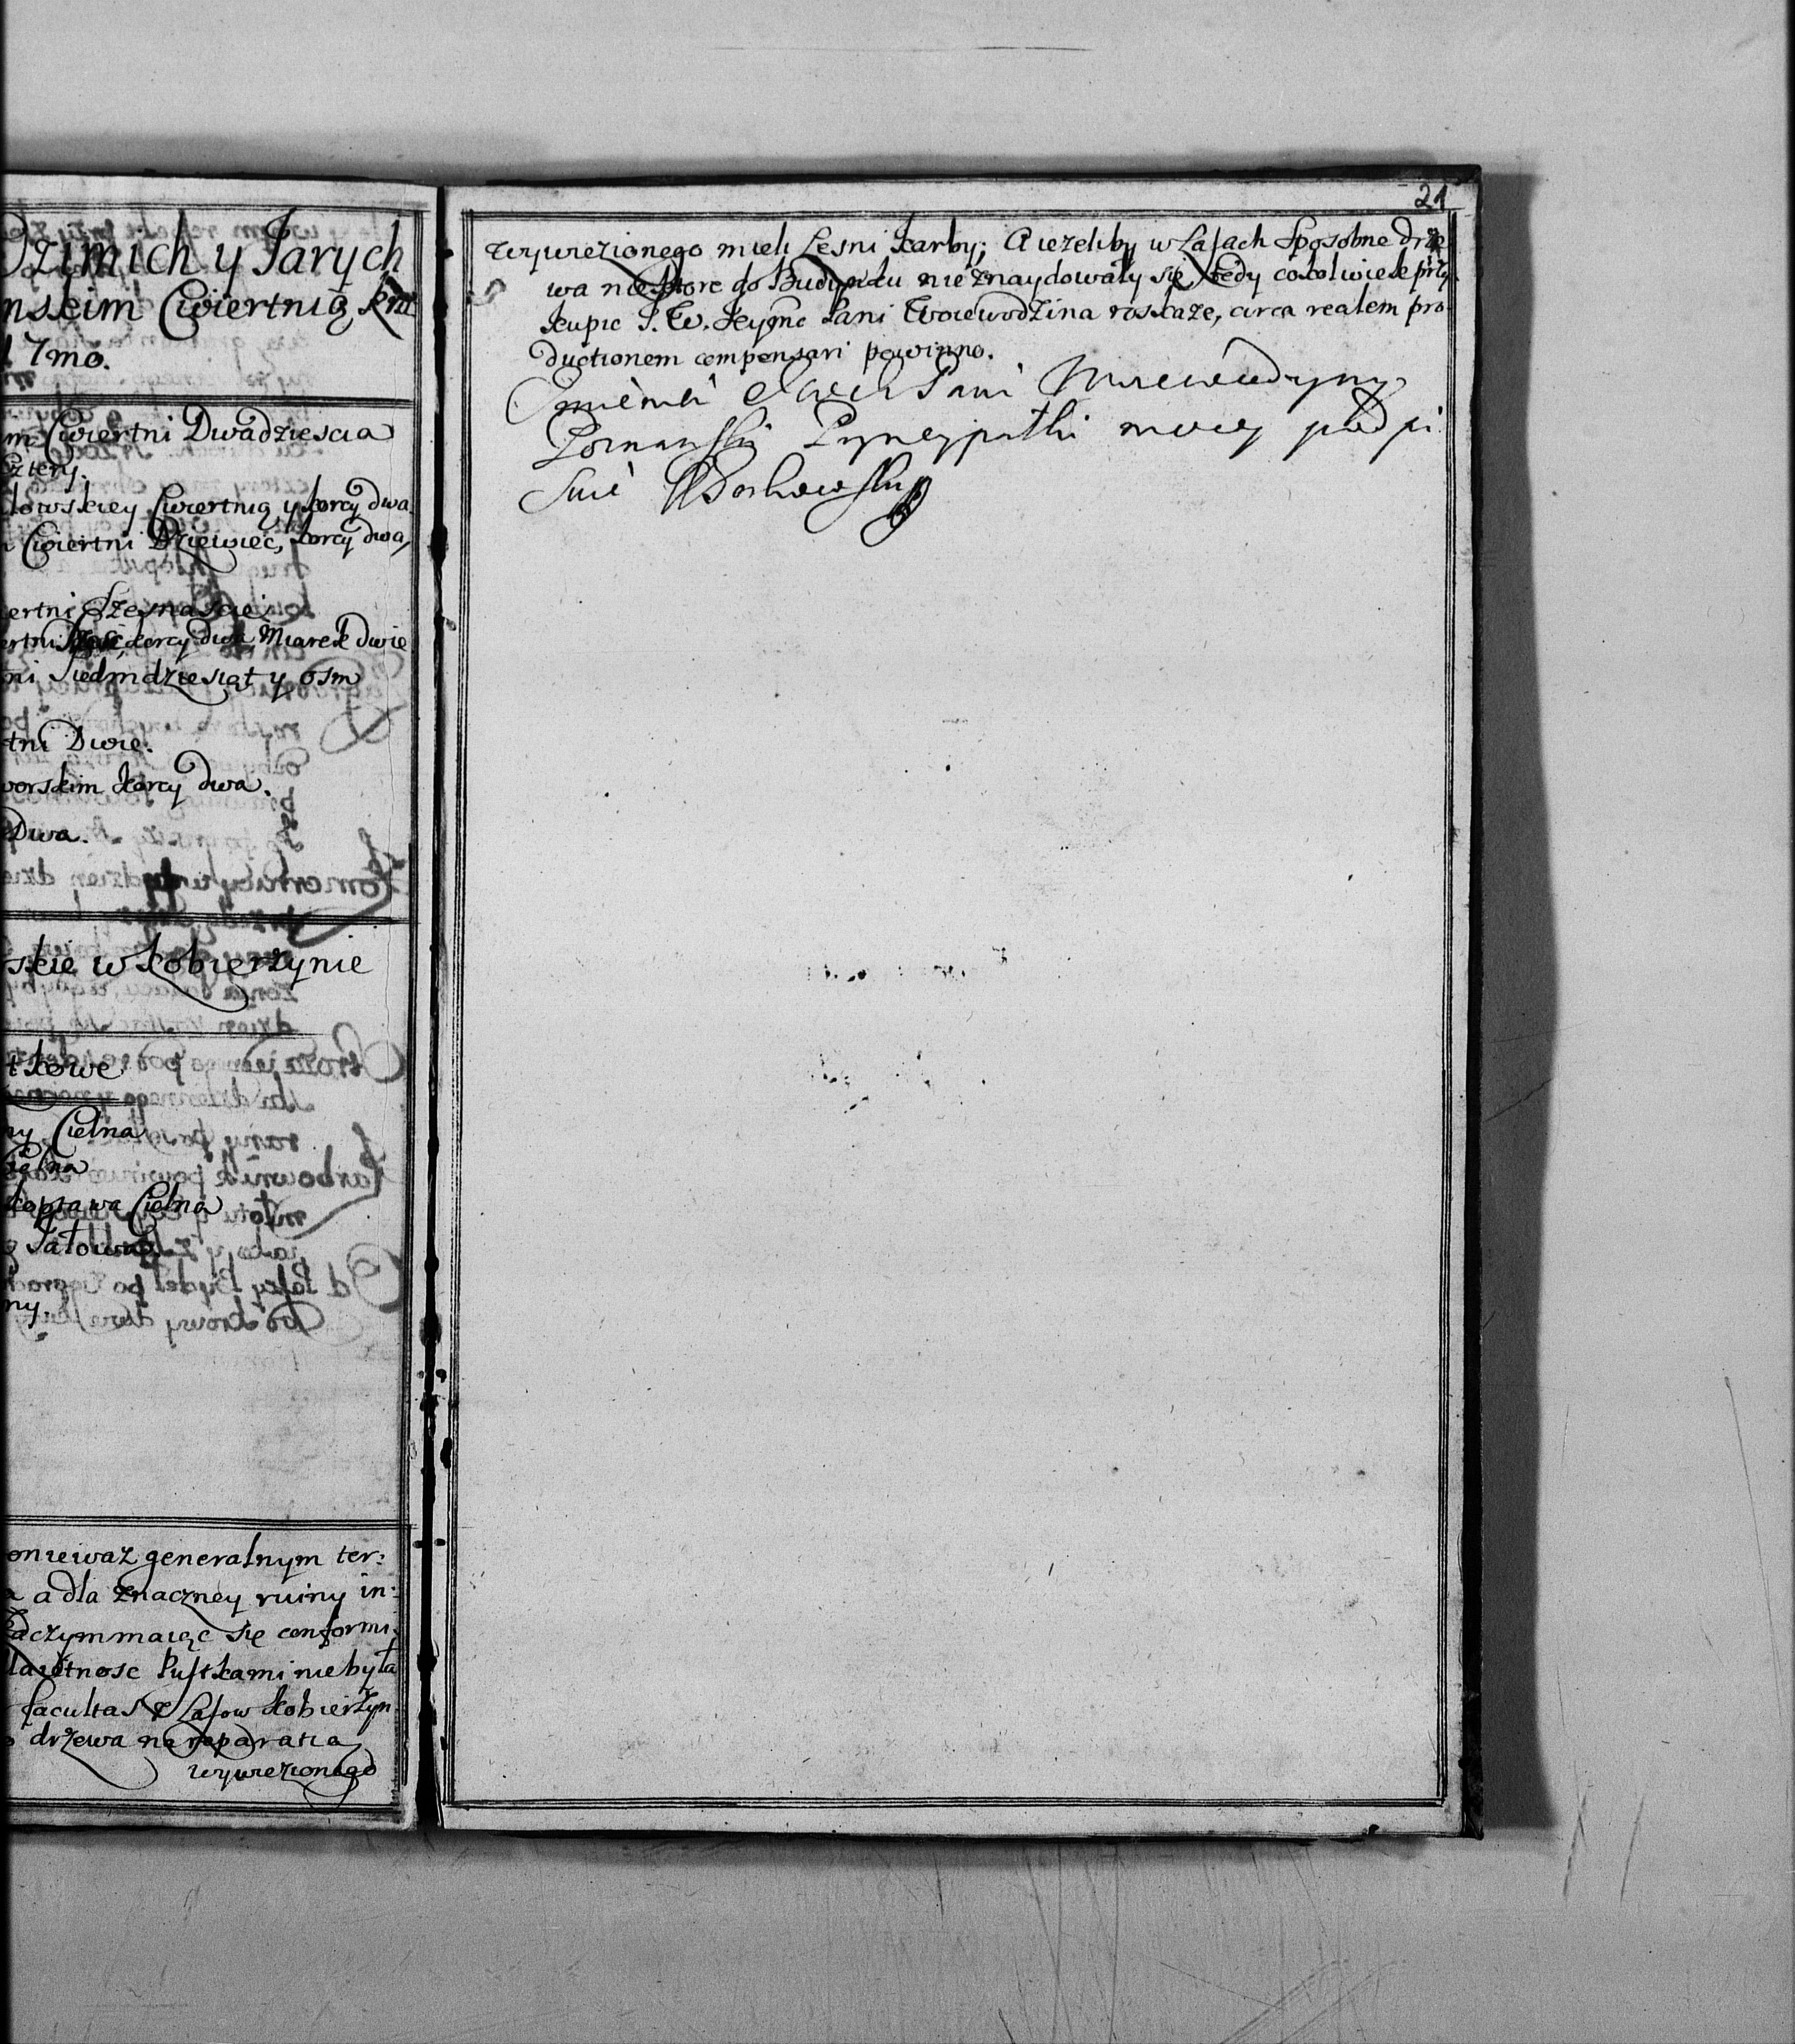 Ozimich y Jarych
nskim Cwiertnią kra
7mo.
m Cwiertni Dwadziescia
cztery.
kowskiey Cwiertnią y korcy dwa
Cwiertni Dziewiec, korcy dwa,
ertni Szesnascie
ertni korcy dwa, Miarek dwie
tni Siedmdziesiąt y osm
tni Dwie.
worskim korcy dwa.
Dwa.
skie w Kobierzynie
tkowe
ny Cielna
Cielna
Cielna
Jałowa
ny.
oniewaz generalnym ter:
a dla znaczney ruiny in:
maiąc się conformi
Pustkami nie była
facultas z Lasow Kobierzyn
drzewa na reparatia
wywiezionego
21
wywiezionego mieli Lesni karby; A iezeliby w Lasach Sposobne drze
wa niektore do Budynku nie znaydowały się tedy cokolwiek przy
kupic J. W. Jeymc Pani Woiewodzina roskaze, circa realem pro
ductionem compensari powinno.
Imieniem Pani Woiewodzyny
Poznanski Pryncypałki moiey podpi
suie